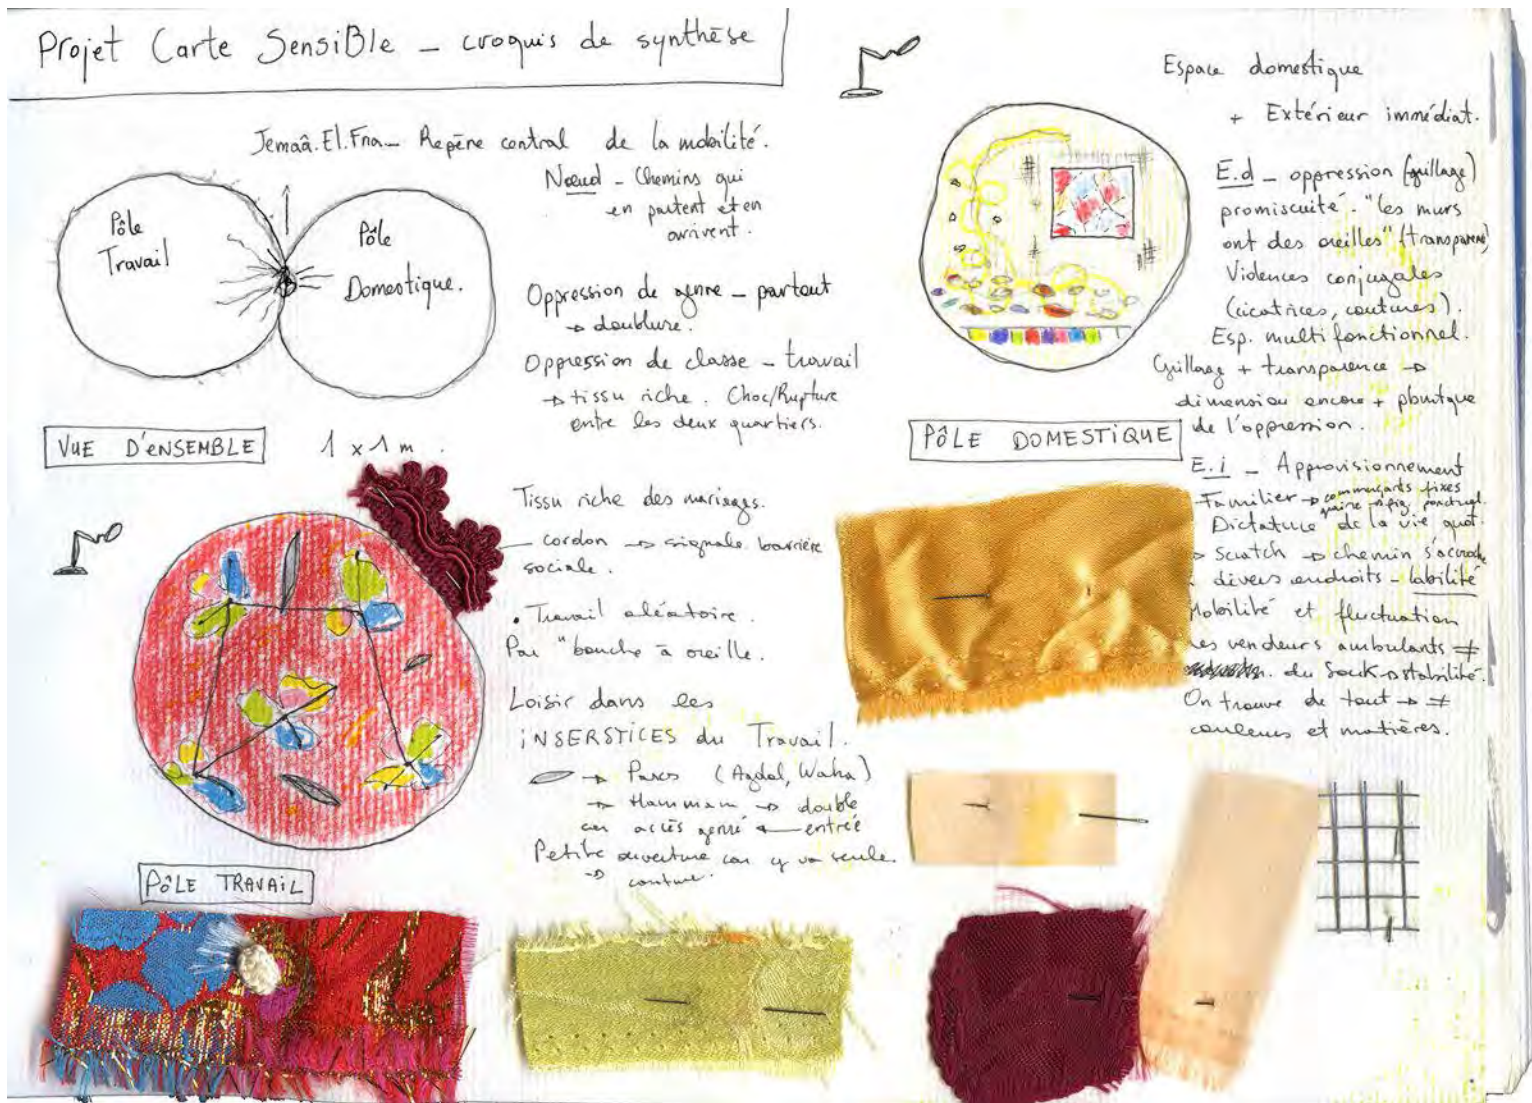 Projet Carte SensiBle - croquis de synthèse
Jemaâ.El.Fna - Repère central de la mobilité.
Nœud - Chemins qui
en partent et en
arrivent.
Pôle
Travail
Pôle
Domestique.
Oppression de genre - partout
→ doublure.
Oppression de classe - travail
→ tissu riche. Choc/Rupture
entre les deux quartiers.
VUE D'ENSEMBLE
1 x 1 m.
Tissu riche des mariages.
cordon → signale barrière
sociale.
• Travail aléatoire.
Par "bouche à oreille.
Loisir dans les
iNSERSTICES du Travail.
→ Parcs (Agdal, Waha)
→ Hammam → double
car accès genré ← entrée
Petite ouverture car y va seule.
→ couture.
PÔLE TRAVAIL
Espace domestique
+ Extérieur immédiat.
E.d - oppression (grillage)
promiscuité. "les murs
ont des oreilles" (transparence)
Violences conjugales
(cicatrices, coutures).
Esp. multifonctionnel.
Grillage + transparence →
dimension encore +
de l'oppression.
PÔLE DOMESTIQUE
E.i - Approvisionnement
Familier → commerçants fixes
Dictature de la vie quot.
→ Scratch → chemin s'accroche
à divers endroits - labilité
Mobilité et fluctuation
des vendeurs ambulants ≠
du Souk → stabilité.
On trouve de tout → ≠
couleurs et matières.